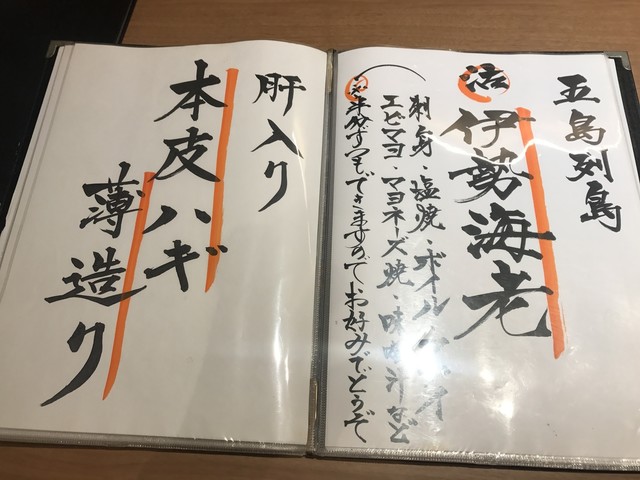 五島列島
活
伊勢海老
刺身・塩焼・ボイル
エビマヨ マヨネーズ焼・味噌汁など
半分ずつもできますのでお好みでどうぞ
肝入り
本皮ハギ
薄造り